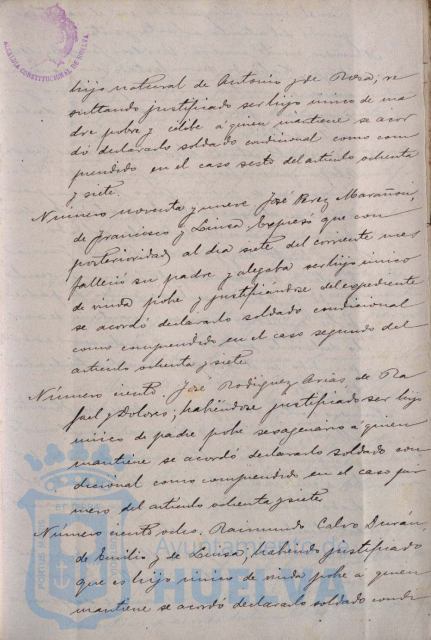 ALCALDIA CONSTITUCIONAL DE HUELVA
hijo natural de Antonio y de Rosa; re
sultando justificado ser hijo unico de ma
dre pobre y célibe á quien mantiene se acor
dó declararlo soldado condicional como com
prendido en el caso sesto del articulo ochenta
y siete.
Número noventa y nueve José Perez Marañon,
de Francisco y Luisa. Expresó que con
posterioridad al dia siete del corriente mes
falleció su padre y alegaba ser hijo unico
de viuda pobe y justificándose del espediente
se acordó declararlo soldado condicional
como comprendido en el caso segundo del
articulo ochenta y siete.
Número ciento. José Rodriguez Arias, de Ra
fael y Dolores; habiéndose justificado ser hijo
unico de padre pobe sesagenario á quien
mantiene se acordó declararlo soldado con
dicional como comprendido en el caso pri
mero del articulo ochenta y siete.
Número ciento Raimundo Calvo Durán,
de Emilio y de Luisa; habiendo justificado
que es hijo unico de viuda pobe á quien
mantiene se acordó declararlo soldado condi
Ayuntamiento de
HUELVA